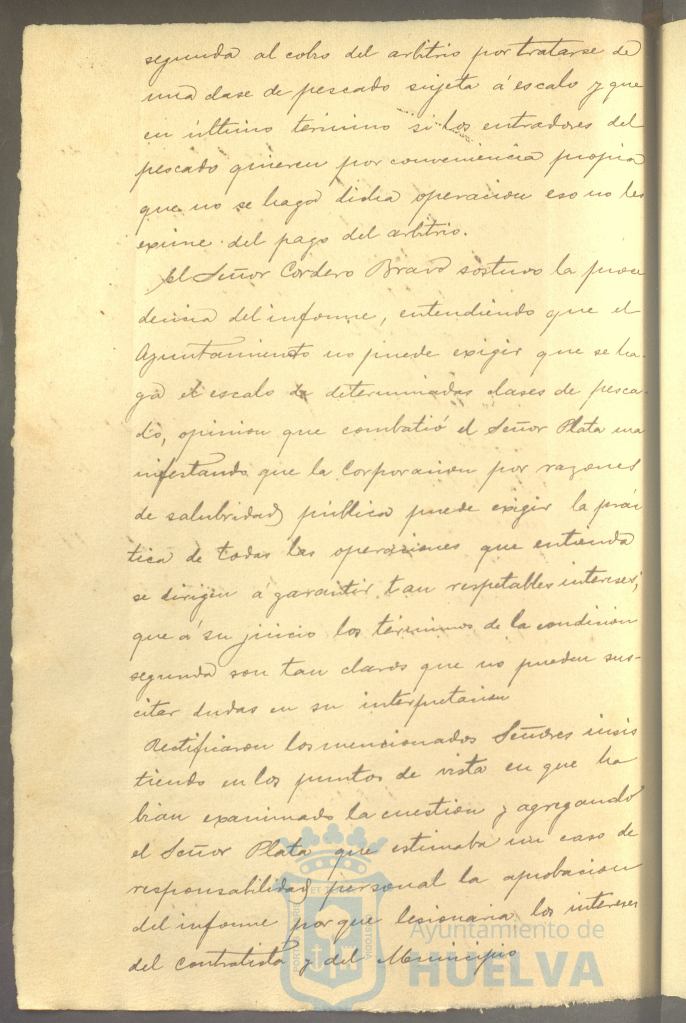 segunda al cobro del arbitrio por tratarse de
una clase de pescado sujeta á escalo y que
en último término si los entradores del
pescado quieren por conveniencia propia
que no se haga dicha operacion eso no les
exime del pago del arbitrio.
El Señor Cordero Bravo sostuvo la proce
dencia del informe, entendiendo que el
Ayuntamiento no puede exigir que se ha-
ga el escalo de determinadas clases de pesca-
do, opinion que combatió el Señor Plata ma
nifestando que la Corporacion por razones
de salubridad pública puede exigir la prác
tica de todas las operaciones que entienda
se dirigen á garantir tan respetables intereses,
que á su juicio los términos de la condicion
segunda son tan claros que no pueden sus-
citar dudas en su interpretacion
Rectificaron los mencionados Señores insis
tiendo en los puntos de vista en que ha
bian examinado la cuestion y agregando
el Señor Plata que estimaba un caso de
responsabilidad personal la aprobacion
del informe porque lesionaria los intereses
del contratista y del Municipio
Ayuntamiento de
HUELVA